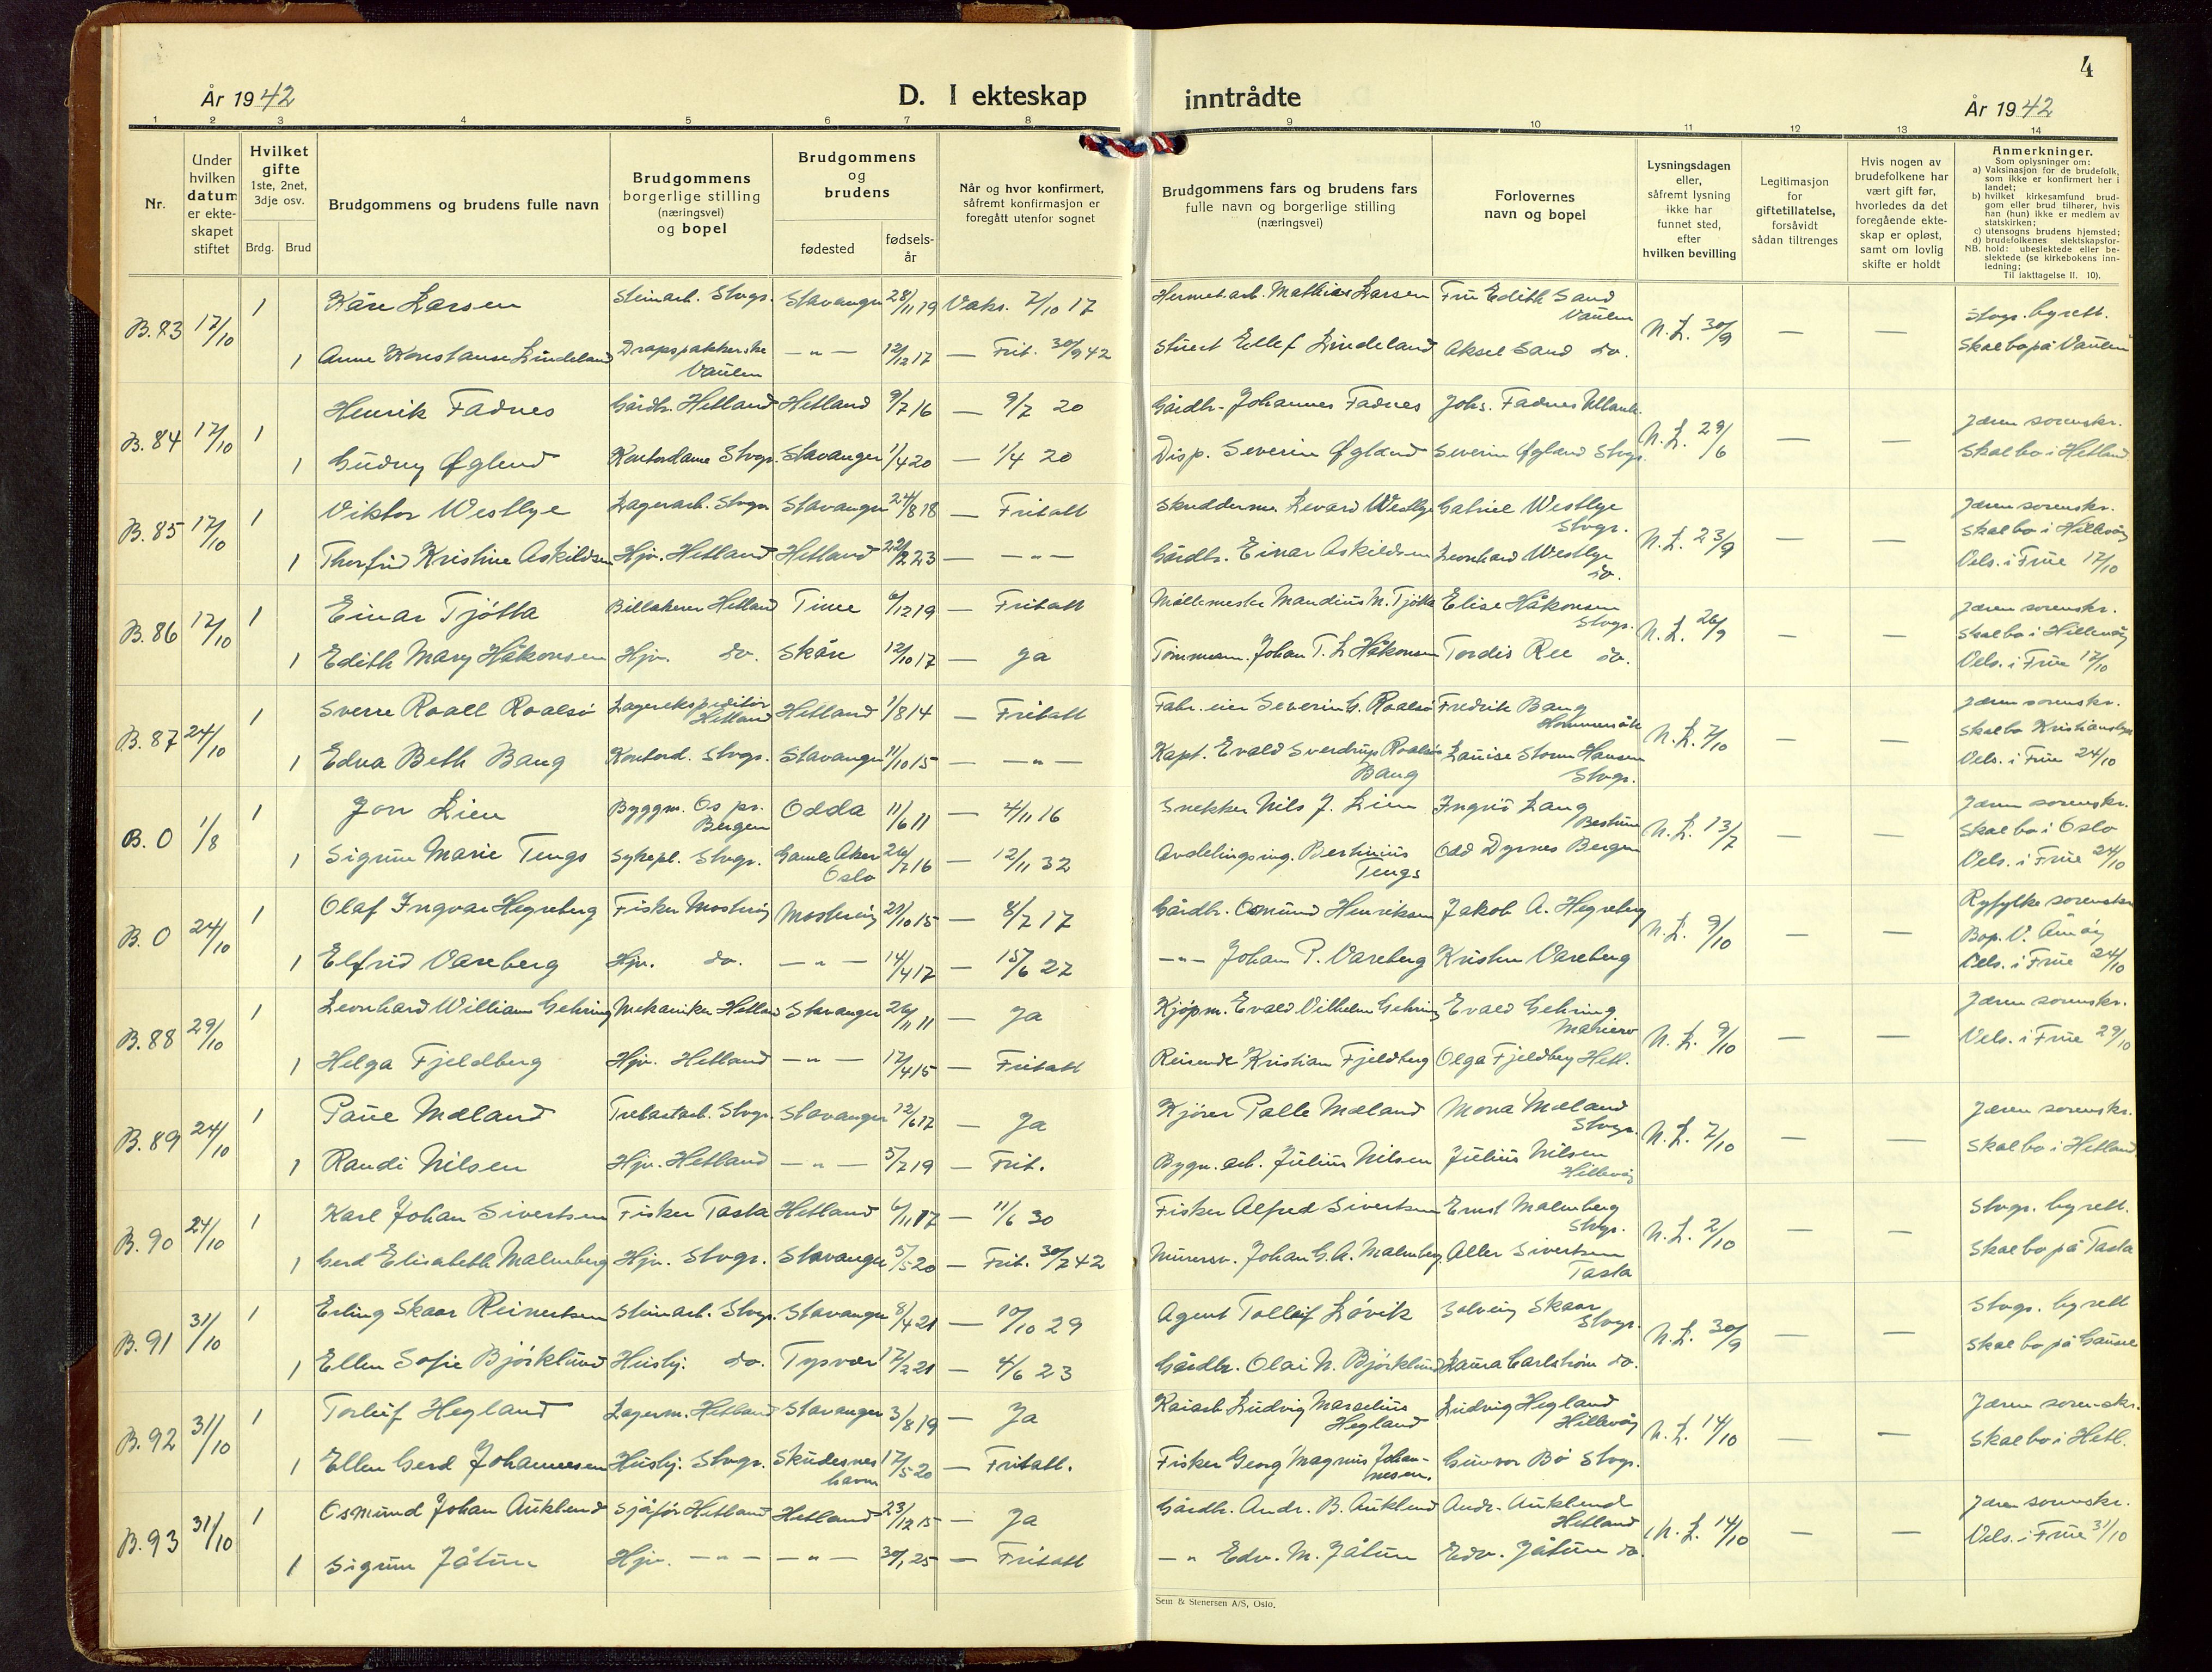 4
År 1942
D. I ekteskap
inntrådte
År 1942
1 2 3 4 5 6 7 8 9 10 11 12 13 14
Nr.
Under hvilken datum er ekte-skapet stiftet
Hvilket gifte
1ste, 2net, 3dje osv.
Brdg. Brud
Brudgommens og brudens fulle navn
Brudgommens borgerlige stilling (næringsvei) og bopel
Brudgommens og brudens
fødested
fødsels-år
Når og hvor konfirmert, såfremt konfirmasjon er foregått utenfor sognet
Brudgommens fars og brudens fars fulle navn og borgerlige stilling (næringsvei)
Forlovernes navn og bopel
Lysningsdagen eller, såfremt lysning ikke har funnet sted, efter hvilken bevilling
Legitimasjon for giftetillatelse, forsåvidt sådan tiltrenges
Hvis nogen av brudefolkene har vært gift før, hvorledes da det foregående ekte-skap er opløst, samt om lovlig skifte er holdt
Anmerkninger.
Som oplysninger om:
a) Vaksinasjon for de brudefolk, som ikke er konfirmert her i landet;
b) hvilket kirkesamfund brud-gom eller brud tilhører, hvis han (hun) ikke er medlem av statskirken;
c) utensogns brudens hjemsted;
d) brudefolkenes slektskapsfor-hold: ubeslektede eller be-slektede (se kirkebokens inn-ledning;
NB. Til iakttagelse II. 10).
B.83 17/10 1 Kåre Larsen Steinarb. Stvgr. Stavanger 28/11 19 Vaks. 7/10 17 Hermet.arb. Mathias Larsen Fru Edith Sand Vaulen N.L. 30/9 — — Stvgr. byrett.
1 Anne Konstanse Lindeland Dropspakkerske Vaulen — " — 12/12 17 — Frit. 30/9 42 Stuert Ellef Lindeland Aksel Sand do. Skal bo på Vaulen
B.84 17/10 1 Henrik Fadnes Gårdbr. Hetland Hetland 9/7 16 — 9/7 20 Gårdbr. Johannes Fadnes Johs. Fadnes N.L. 29/6 — — Jæren sorenskr.
1 Gudny Øglend Kontordame Stvgr. Stavanger 1/4 20 — 1/4 20 Disp. Severin Øgland Severin Øgland Stvgr. Skal bo i Hetland
B.85 17/10 1 Viktor Westlye Lagerarb. Stvgr. Stavanger 24/8 18 — Fritatt Skreddersm. Westlye Gabriel Westlye Stvgr. N.L. 23/9 Jæren sorenskr.
1 Thorfrid Kristine Askildsen Hjv. Hetland Hetland 23 — — " — Gårdbr. Einar Askildsen Leonhard Westlye do. Skal bo i Hillevåg
Vels. i Frue 17/10
B.86 17/10 1 Einar Tjøtta Billakerer Hetland Time 6/12 19 — Fritatt Møllemester Mandius M. Tjøtta Elise Håkonsen Stvgr. N.L. 26/9 — — Jæren sorenskr.
1 Edith Mary Håkonsen Hjv. do. Skåre 12/10 17 — Ja Tømmerm. Johan T. L Håkonsen Tordis Ree do. Skal bo i Hillevåg
Vels. i Frue 17/10
B.87 24/10 1 Sverre Roall Roalsø Lagerekspeditør Hetland Hetland 1/8 14 — Fritatt Fabr. eier Severin G. Roalsø Fredrik Bang Hommersåk N.L. 7/10 — — Jæren sorenskr.
1 Edna Beth Bang Kontord. Stvgr. Stavanger 11/10 15 — — " — Kapt. Evald Sverdrup Roalsøe Bang Louise Storm Hansen Stvgr. Skal bo Kristiansby
Vels. i Frue 24/10
B. 0 1/8 1 Jon Lien Byggm. Os pr. Bergen Odda 11/6 11 — 4/11 16 Snekker Nils J. Lien Ingrid Lang Bestum N.L. 13/7 — — Jæren sorenskr.
1 Sigrun Marie Tengs Sykepl. Stvgr. Gamle Aker Oslo 26/7 16 — 12/11 32 Avdelingsing. Bertinius Tengs Odd Dyrnes Bergen Skal bo i Oslo
Vels. i Frue 24/10
B. 0 24/10 1 Olaf Ingvar Hegreberg Fisker Mosterøy Mosterøy 29/10 15 — 8/7 17 Gårdbr. Osmund Henriksen Jakob A. Hegreberg N.L. 9/10 — — Ryfylke sorenskr.
1 Elfrid Vareberg Hjv. do. — " — 14/4 17 — 15/6 27 — " — Johan P. Vareberg Kristen Vareberg Bop. V. Åmøy
Vels. i Frue 24/10
B.88 29/10 1 Leonhard William Gehring Mekaniker Hetland Stavanger 26/11 11 — Ja Kjøpm. Evald Vilhelm Gehring Evald Gehring Mariero N.L. 9/10 — — Jæren sorenskr.
1 Helga Fjeldberg Hjv. Hetland — " — 17/4 15 — Fritatt Reisende Kristian Fjeldberg Olga Fjeldberg Hetl. Vels. i Frue 29/10
B.89 24/10 1 Paue Mæland Trelastarb. Stvgr. Stavanger 12/6 17 — Ja Kjører Palle Mæland Mona Mæland Stvgr. N.L. 7/10 — — Jæren sorenskr.
1 Randi Nilsen Hjv. Hetland — " — 5/7 19 — Frit. Bygn.arb. Julius Nilsen Julius Nilsen Hillevåg Skal bo i Hetland
B.90 24/10 1 Karl Johan Sivertsen Fisker Tasta Hetland 6/11 17 — 11/6 30 Fisker Alfred Sivertsen Ernst Malmberg Stvgr. N.L. 2/10 — — Stvgr. byrett.
1 Gerd Elisabeth Malmberg Hjv. Stvgr. Stavanger 5/5 20 — Frit. 30/7 42 Murersv. Johan G.A. Malmberg Aller Sivertsen Tasta Skal bo på Tasta
B.91 31/10 1 Erling Skaar Reinertsen Steinarb. Stvgr. Stavanger 8/4 21 — 10/10 29 Agent Tolleif Løvik Solveig Skaar Stvgr. N.L. 30/9 — — Stvgr. byrett
1 Ellen Sofie Bjørklund Hushj. do. Tysvær 17/2 21 — 4/6 23 Gårdbr. Olai N. Bjørklund Laura Carlstrøm do. Skal bo på Gausel
B.92 31/10 1 Torleif Hegland Lagerm. Hetland Stavanger 3/8 19 — Ja Kaiarb Ludvig Marselius Hegland Ludvig Hegland Hillevåg N.L. 14/10 — — Jæren sorenskr.
1 Ellen Gerd Johannesen Hushj. Stvgr. Skudesneshavn 17/5 20 — Fritatt. Fisker Georg Magnus Johannesen. Gunvor Bø Stvgr. Skal bo i Hetl.
B.93 31/10 1 Osmund Johan Auklend Sjåfør Hetland Hetland 23/12 15 — Ja Gårdbr. Andr. B. Auklend Andr. Auklend Hetland N.L. 14/10 — — Jæren sorenskr.
1 Sigrun Jåtun Hjv. — " — — " — 30/1 25 — Fritatt — " Edv. M. Jåtun Edv. Jåtun do. Vels. i Frue 31/10
Sem & Stenersen A/S, Oslo.